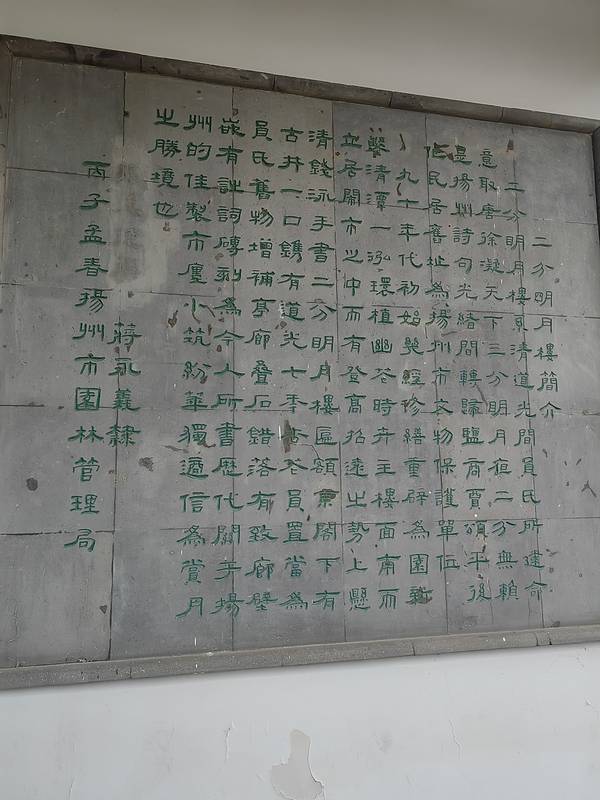 二分明月樓簡介
二分明月樓系清道光間員氏所建命
意取唐徐凝天下三分明月夜二分無賴
是揚州詩句光緒間轉歸鹽商賈頌平後
作民居舊址為揚州市文物保護單位
九十年代初始經修繕重辟為園新
鑿清潭一泓環植幽花時卉主樓面南而
立居鬧市之中而有登高招遠之勢上懸
清錢泳手書二分明月樓匾額東閣下有
古井一口鐫有道光七年杏花員置當為
員氏舊物增補亭廊疊石錯落有致廊壁
嵌有詩詞磚刻為今人所書歷代關于揚
州的佳製市廛小筑紛華獨遁信為賞月
之勝境也
蔣永義隸
丙子孟春揚州市園林管理局